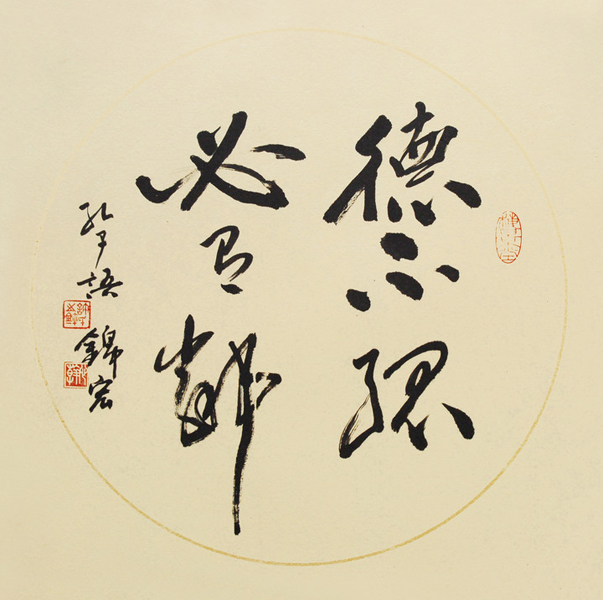 德不孤
必有鄰
孔子語 錦宏